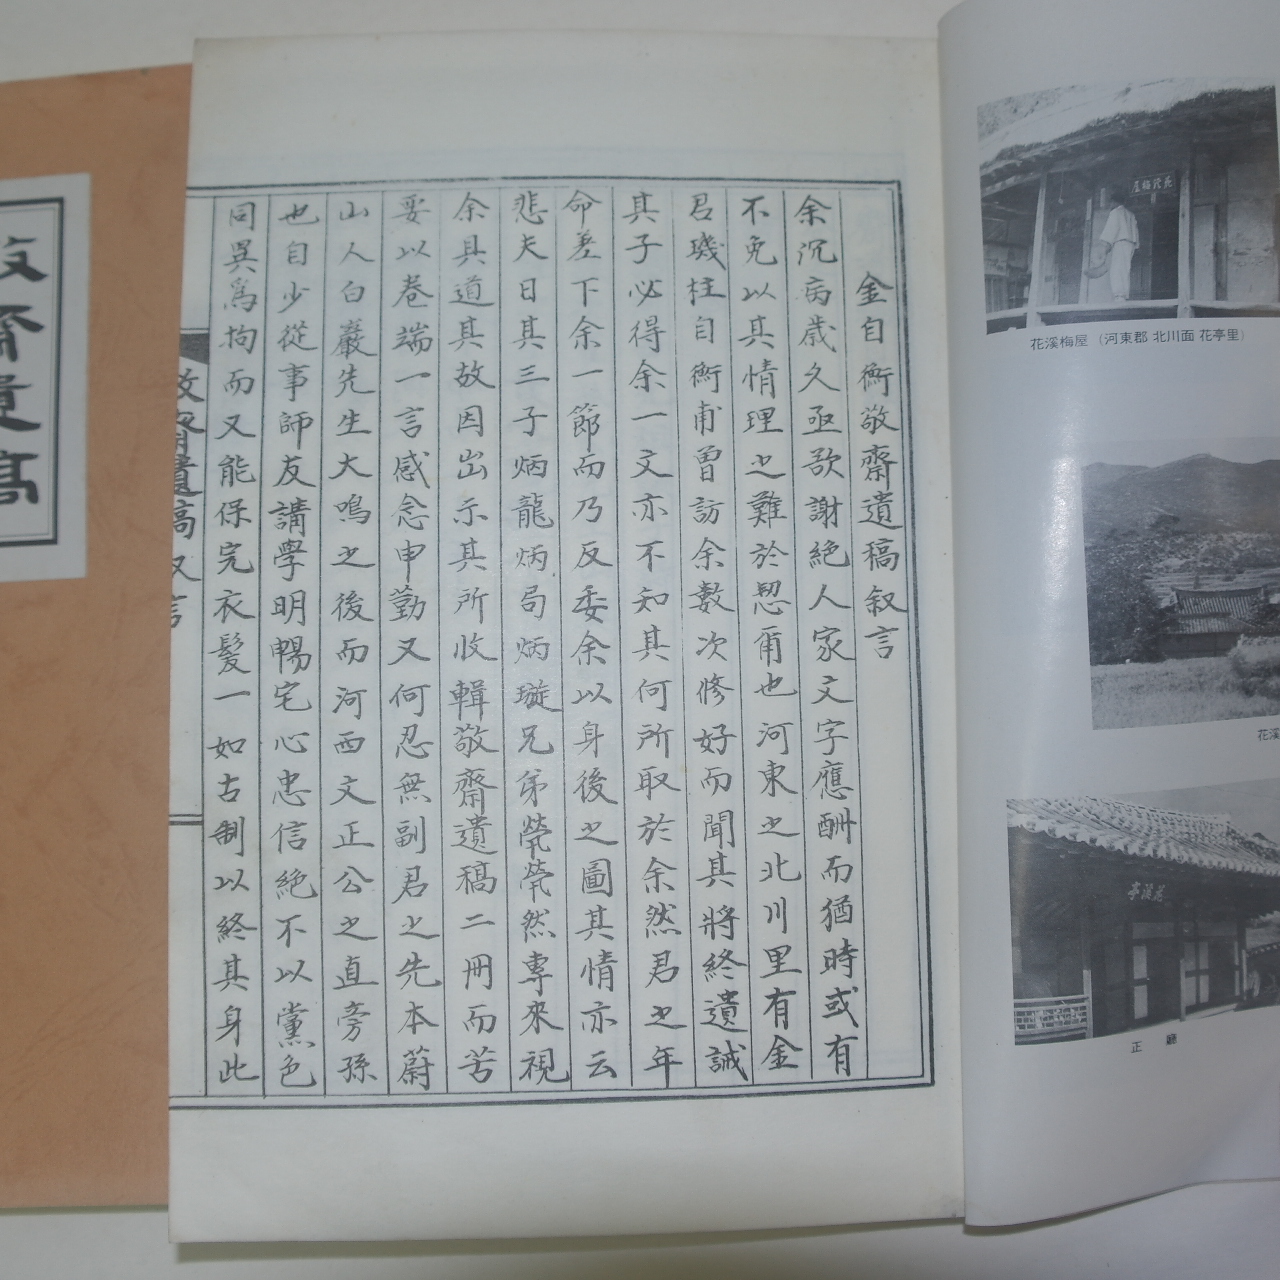 金自衡敬齋遺稿叙言
余沉病歲久亟欲謝絶人家文字應酬而猶時或有
不免以其情理之難於恝爾也河東之北川里有金
君璣柱自衡甫曾訪余數次修好而聞其將終遺誡
其子必得余一文亦不知其何所取於余然君之年
命差下余一節而乃反委余以身後之圖其情亦云
悲夫日其三子炳龍炳局炳璇兄弟煢煢然專來視
余具道其故因出示其所收輯敬齋遺稿二冊而苦
要以卷端一言感念申勤又何忍無副君之先本蔚
山人白巖先生大鳴之後而河西文正公之直旁孫
也自少從事師友講學明暢宅心忠信絶不以黨色
同異爲拘而又能保完衣髮一如古制以終其身此
敬齋遺稿
花溪梅屋 (河東郡 北川面 花亭里)
花溪
花溪亭
正 廳